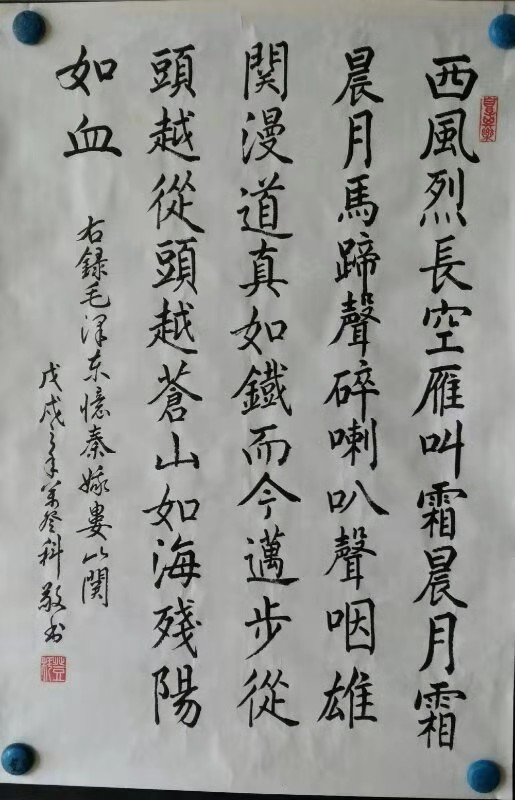 西風烈長空雁叫霜晨月霜
晨月馬蹄聲碎喇叭聲咽雄
関漫道真如鐵而今邁步從
頭越從頭越蒼山如海殘陽
如血
右録毛澤东憶秦娥婁山関
戊戌之年 登科敬书